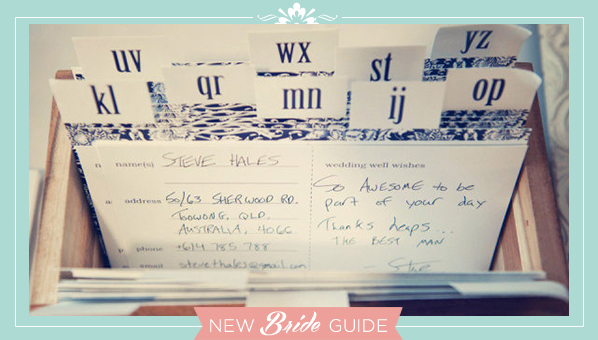 wx
yz
uv
st
qr
kl
mn
ij
op
n name(s) STEVE HALES
a address 50/63 SHERWOOD RD.
TOOWONG, QLD.
AUSTRALIA, 4066
p phone +614 785 788
e email stevethales@gmail.com
wedding well wishes
So AWESOME to be
part of your day
Thanks heaps...
THE BEST MAN
— Steve
NEW Bride GUIDE